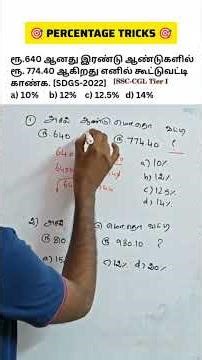 🎯 PERCENTAGE TRICKS 🎯
ரூ.640 ஆனது இரண்டு ஆண்டுகளில்
ரூ. 774.40 ஆகிறது எனில் கூட்டுவட்டி
காண்க. [SDGS-2022] [SSC-CGL Tier I
a) 10% b) 12% c) 12.5% d) 14%
1) அசல் ஆண்டு மொத்தம் வட்டி
ரூ.640 ரூ 774.40 ?
640
a) 10%
b) 12%
c) 12.5%
d) 14%
2) அசல் மொத்தம்
ரூ 810 ரூ 980.10 ?
c) 12% d) 20%